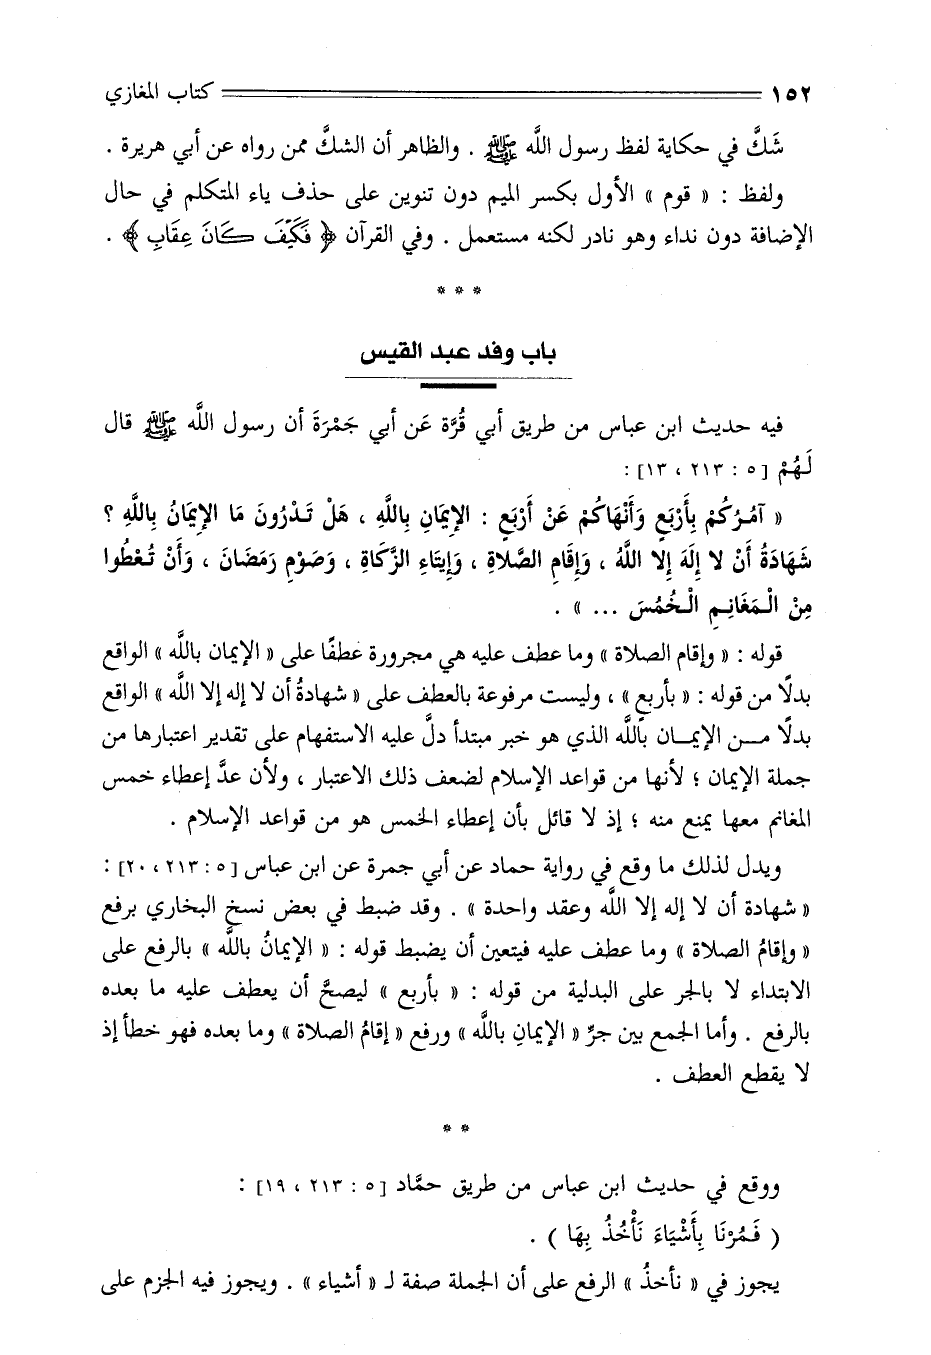 ١٥٢ كتاب المغازي
شَكَّ في حكاية لفظ رسول اللَّه ﷺ . والظاهر أن الشكَّ ممن رواه عن أبي هريرة .
ولفظ : « قوم » الأول بكسر الميم دون تنوين على حذف ياء المتكلم في حال
الإضافة دون نداء وهو نادر لكنه مستعمل . وفي القرآن ﴿ فَكَيْفَ كَانَ عِقَابِ ﴾ .
* * *
باب وفد عبد القيس
فيه حديث ابن عباس من طريق أبي قُرَّة عَن أبي جَمْرَةَ أن رسول اللَّه ﷺ قال
لَهُمْ [ ٥ : ٢١٣ ، ١٣ ] :
« آمُرُكُمْ بِأَرْبَعٍ وَأَنْهَاكُمْ عَنْ أَرْبَعٍ : الإِيمَانِ بِاللَّهِ ، هَلْ تَدْرُونَ مَا الإِيمَانُ بِاللَّهِ ؟
شَهَادَةُ أَنْ لا إِلَهَ إِلا اللَّهُ ، وَإِقَامِ الصَّلاةِ ، وَإِيتَاءِ الزَّكَاةِ ، وَصَوْمِ رَمَضَانَ ، وَأَنْ تُعْطُوا
مِنْ الْمَغَانِمِ الْخُمُسَ ... » .
قوله : « وإقام الصلاة » وما عطف عليه هي مجرورة عطفًا على « الإيمان باللَّه » الواقع
بدلًا من قوله : « بأربعٍ » ، وليست مرفوعة بالعطف على « شهادةُ أن لا إله إلا اللَّه » الواقع
بدلًا مـــن الإيمـــان باللَّه الذي هو خبر مبتدأ دلَّ عليه الاستفهام على تقدير اعتبارها من
جملة الإيمان ؛ لأنها من قواعد الإسلام لضعف ذلك الاعتبار ، ولأن عدَّ إعطاء خمس
المغانم معها يمنع منه ؛ إذ لا قائل بأن إعطاء الخمس هو من قواعد الإسلام .
ويدل لذلك ما وقع في رواية حماد عن أبي جمرة عن ابن عباس [ ٥ : ٢١٣ ، ٢٠ ] :
« شهادة أن لا إله إلا اللَّه وعقد واحدة » . وقد ضبط في بعض نسخ البخاري برفع
« وإقامُ الصلاة » وما عطف عليه فيتعين أن يضبط قوله : « الإيمانُ باللَّه » بالرفع على
الابتداء لا بالجر على البدلية من قوله : « بأربع » ليصحَّ أن يعطف عليه ما بعده
بالرفع . وأما الجمع بين جرِّ « الإيمانِ باللَّه » ورفع « إقامُ الصلاة » وما بعده فهو خطأ إذ
لا يقطع العطف .
* *
ووقع في حديث ابن عباس من طريق حمَّاد [ ٥ : ٢١٣ ، ١٩ ] :
( فَمُرْنَا بِأَشْيَاءَ نَأْخُذُ بِهَا ) .
يجوز في « نأخذُ » الرفع على أن الجملة صفة لـ « أشياء » . ويجوز فيه الجزم على